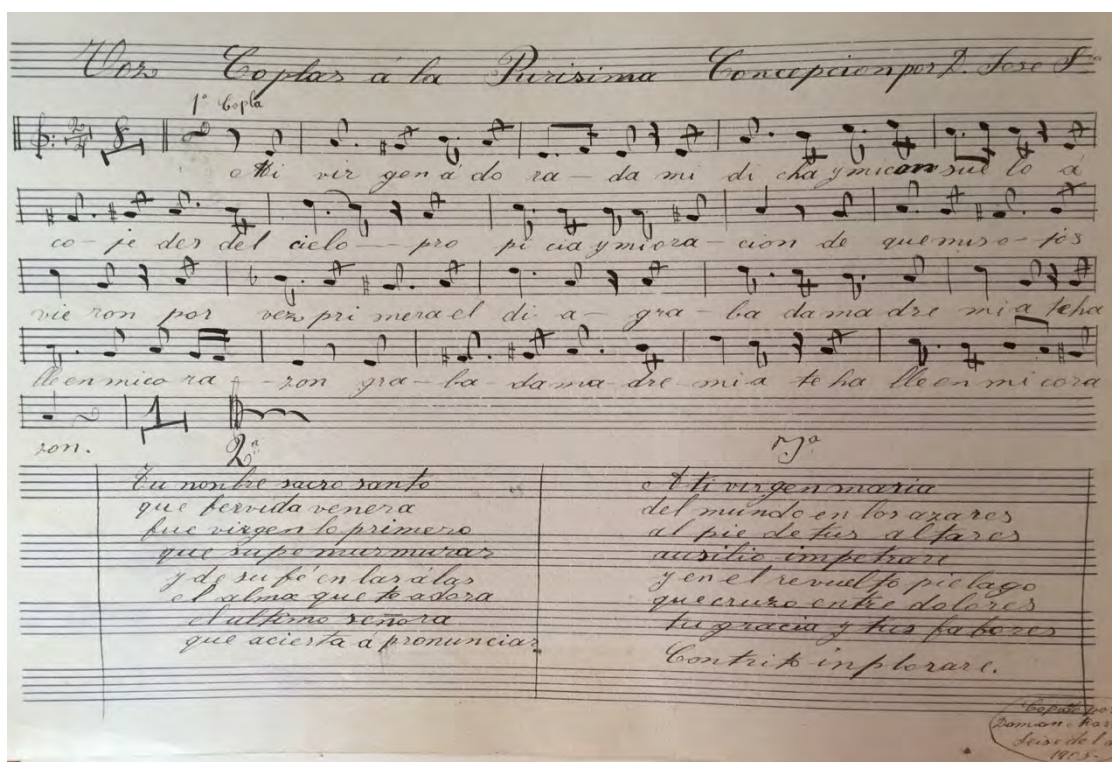 Voz Coplas á la Purisima Concepcion por D. Jose S
1ª Copla
Mi vir gen á do ra - da mi di cha y mi con sue lo á
co - je des del cielo - pro pi cia y mi ora - cion de que mis o - jos
vie ron por vez pri mera el di a - gra - ba da ma dre mi a te ha
lle en mi co ra - zon gra - ba - da ma - dre - mi a te ha lle en mi cora
zon.
1
2ª
Tu nonbre sacro santo
que fervida venera
fue virgen lo primero
que supe murmurar
y de su fé en las álas
el alma que te adora
el ultimo señora
que acierta á pronunciar
3ª
A ti virgen maria
del mundo en los azares
al pie de tus altares
ausilio impetrare
y en el revuelto pielago
que cruzo entre dolores
tu gracia y tus fabores
Contrito inplorare.
Copiado por
1905